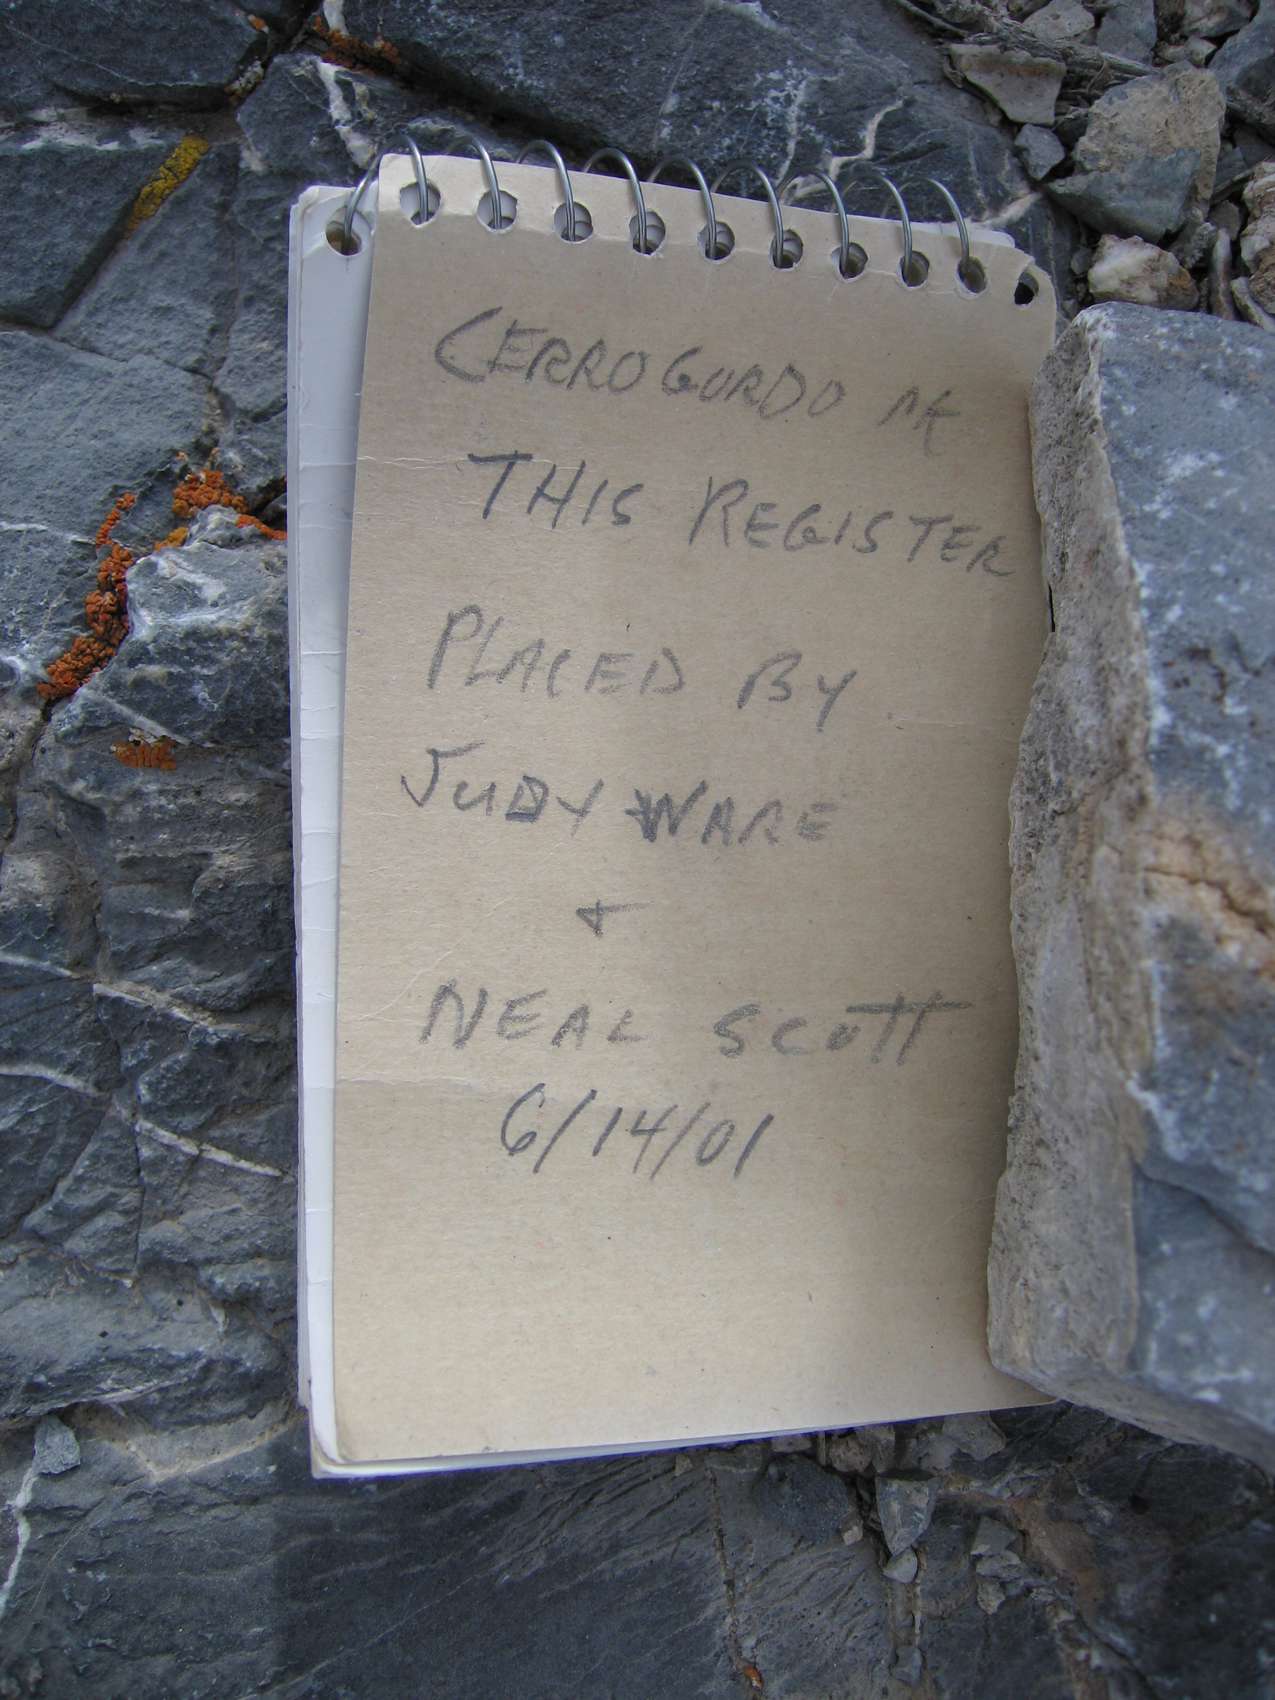 CERRO GORDO PK
THIS REGISTER
PLACED BY
JUDY WARE
+
NEAL SCOTT
6/14/01